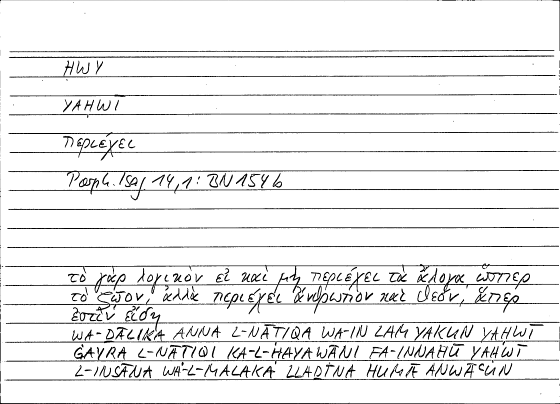 ḤWY
YAḤWĪ
περιέχει
Porph. Isag 14,1: BN 154b
τὸ γὰρ λογικὸν εἰ καὶ μὴ περιέχει τὰ ἄλογα ὥσπερ
τὸ ζῷον, ἀλλὰ περιέχει ἄνθρωπον καὶ θεόν, ἅπερ
ἐστὶν εἴδη
WA-ḎĀLIKA ANNA L-NĀṬIQA WA-IN LAM YAKUN YAḤWĪ
ĠAYRA L-NĀṬIQI KA-L-ḤAYAWĀNI FA-INNAHŪ YAḤWĪ
L-INSĀNA WA-L-MALAKA LLAḎĪNA HUMĀ ANWĀʿUN